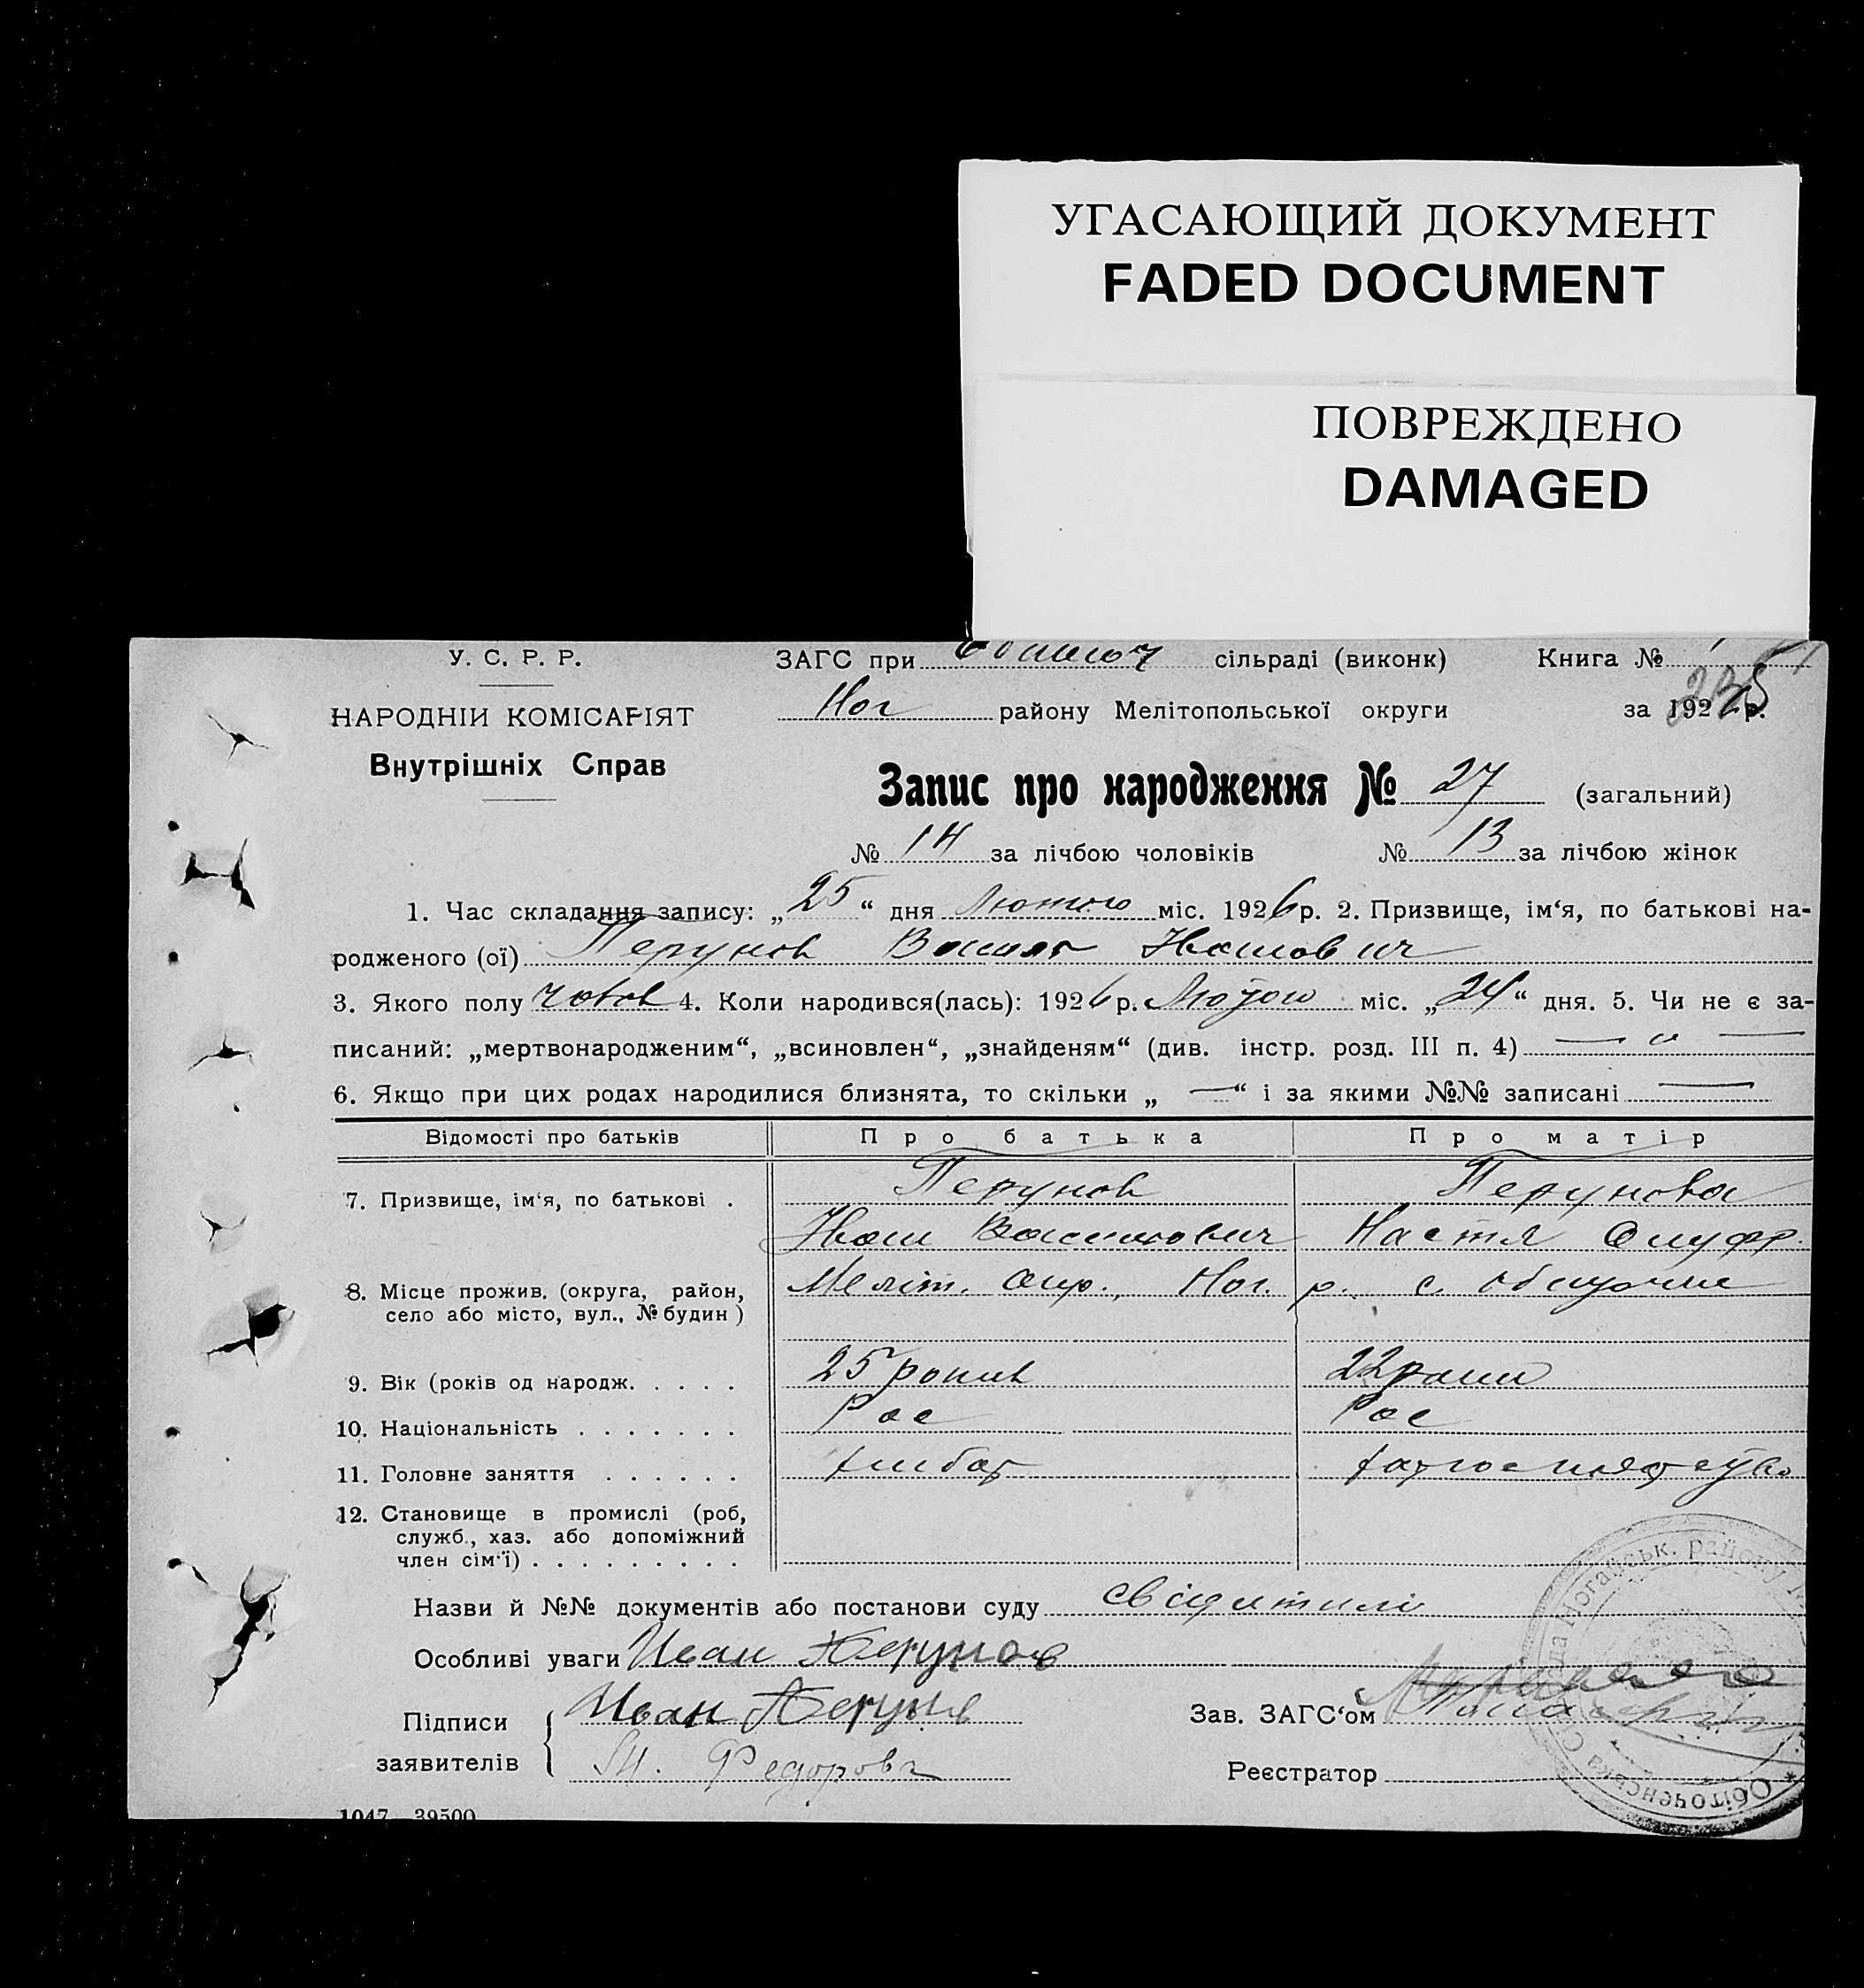 УГАСАЮЩИЙ ДОКУМЕНТ
FADED DOCUMENT
ПОВРЕЖДЕНО
DAMAGED
У. С. Р. Р.
ЗАГС при сільраді (виконк) Книга №
НАРОДНІЙ КОМІСАРІЯТ
Ног району Мелітопольської округи за 192 р.
Внутрішніх Справ
Запис про народження № 27 (загальний)
№ 14 за лічбою чоловіків № 13 за лічбою жінок
1. Час складання запису: „25“ дня Лютого міс. 1926 р. 2. Призвище, ім‘я, по батькові на-
родженого (ої) Перунов Иванович
3. Якого полу 4. Коли народився(лась): 1926 р. Лютого міс. „24“ дня. 5. Чи не є за-
писаний: „мертвонародженим“, „всиновлен“, „знайденям“ (див. інстр. розд. III п. 4) — „ —
6. Якщо при цих родах народилися близнята, то скільки „ — “ і за якими №№ записані —
Відомості про батьків Про батька Про матір
7. Призвище, ім‘я, по батькові . Перунов Перунова
Иван Василович Настя Онуфр.
8. Місце прожив. (округа, район, село або місто, вул., № будин) Меліт. окр., Ног. р. с. Обиточне
9. Вік (років од народж. . . . . 25 років 22 роки
10. Національність . . . . . . . Рос Рос
11. Головне заняття . . . . . .
12. Становище в промислі (роб,
служб., хаз. або допоміжний
член сім‘ї) . . . . . . . . .
Назви й №№ документів або постанови суду
Особливі уваги Иван Перунов
Підписи Иван Перунов Зав. ЗАГС‘ом
заявителів Федорова Реєстратор
1047 39500